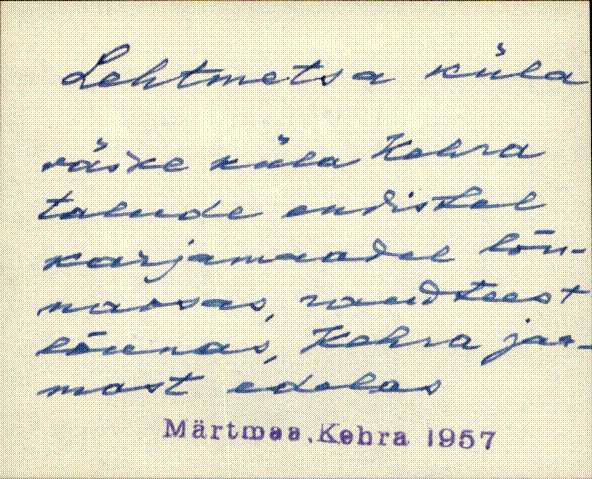 Lehtmetsa küla
väike küla Kehra
talude endistel
karjamaadel lõu-
naosas, raudteest
lõunas, Kehra jaa-
mast edelas
Märtmaa, Kehra 1957